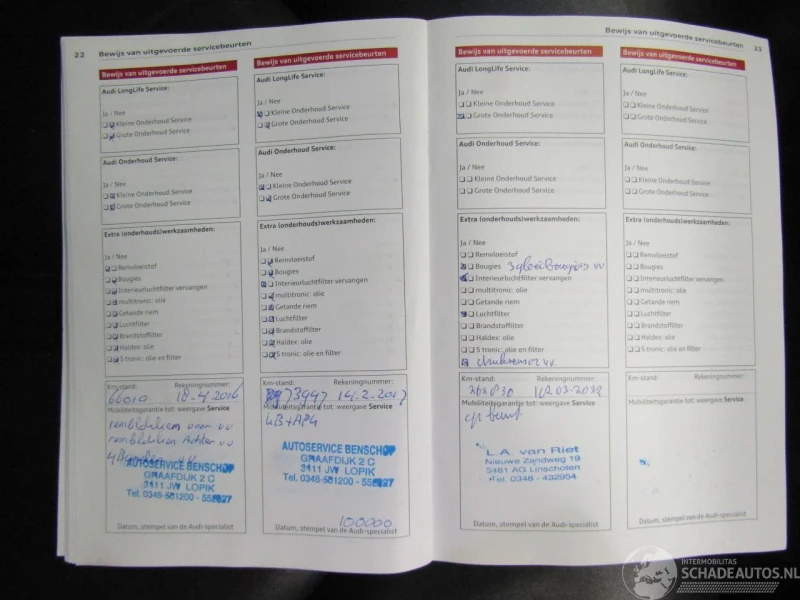 22 Bewijs van uitgevoerde servicebeurten
Bewijs van uitgevoerde servicebeurten
Audi LongLife Service:
Ja / Nee
Kleine Onderhoud Service
Grote Onderhoud Service
Audi Onderhoud Service:
Ja / Nee
Kleine Onderhoud Service
Grote Onderhoud Service
Extra (onderhouds)werkzaamheden:
Ja / Nee
Remvloeistof
Bougies
Interieurluchtfilter vervangen
multitronic: olie
Getande riem
Luchtfilter
Brandstoffilter
Haldex: olie
S tronic: olie en filter
Km-stand: Rekeningnummer:
66010 18-4.2016
Mobiliteitsgarantie tot: weergave Service
remblokken voor vv
remblokken Achter vv
AUTOSERVICE BENSCHOP
GRAAFDIJK 2 C
3411 JW LOPIK
Tel. 0348-551200 -
Datum, stempel van de Audi-specialist
Bewijs van uitgevoerde servicebeurten
Audi LongLife Service:
Ja / Nee
Kleine Onderhoud Service
Grote Onderhoud Service
Audi Onderhoud Service:
Ja / Nee
Kleine Onderhoud Service
Grote Onderhoud Service
Extra (onderhouds)werkzaamheden:
Ja / Nee
Remvloeistof
Bougies
Interieurluchtfilter vervangen
multitronic: olie
Getande riem
Luchtfilter
Brandstoffilter
Haldex: olie
S tronic: olie en filter
Km-stand: Rekeningnummer:
73947 14-2-2017
Mobiliteitsgarantie tot: weergave Service
4B+APK
AUTOSERVICE BENSCHOP
GRAAFDIJK 2 C
3411 JW LOPIK
Tel. 0348-551200 -
100000
Datum, stempel van de Audi-specialist
Bewijs van uitgevoerde servicebeurten 23
Bewijs van uitgevoerde servicebeurten
Audi LongLife Service:
Ja / Nee
Kleine Onderhoud Service
Grote Onderhoud Service
Audi Onderhoud Service:
Ja / Nee
Kleine Onderhoud Service
Grote Onderhoud Service
Extra (onderhouds)werkzaamheden:
Ja / Nee
Remvloeistof
Bougies 3 gloeibougies vv
Interieurluchtfilter vervangen
multitronic: olie
Getande riem
Luchtfilter
Brandstoffilter
Haldex: olie
S tronic: olie en filter
vv
Km-stand: Rekeningnummer:
Mobiliteitsgarantie tot: weergave Service
op beurt
L.A. van Riet
Nieuwe Zandweg 19
3461 AG Linschoten
Tel. 0348 - 432954
Datum, stempel van de Audi-specialist
Bewijs van uitgevoerde servicebeurten
Audi LongLife Service:
Ja / Nee
Kleine Onderhoud Service
Grote Onderhoud Service
Audi Onderhoud Service:
Ja / Nee
Kleine Onderhoud Service
Grote Onderhoud Service
Extra (onderhouds)werkzaamheden:
Ja / Nee
Remvloeistof
Bougies
Interieurluchtfilter vervangen
multitronic: olie
Getande riem
Luchtfilter
Brandstoffilter
Haldex: olie
S tronic: olie en filter
Km-stand: Rekeningnummer:
Mobiliteitsgarantie tot: weergave Service
Datum, stempel van de Audi-specialist
INTERMOBILITAS
SCHADEAUTOS.NL